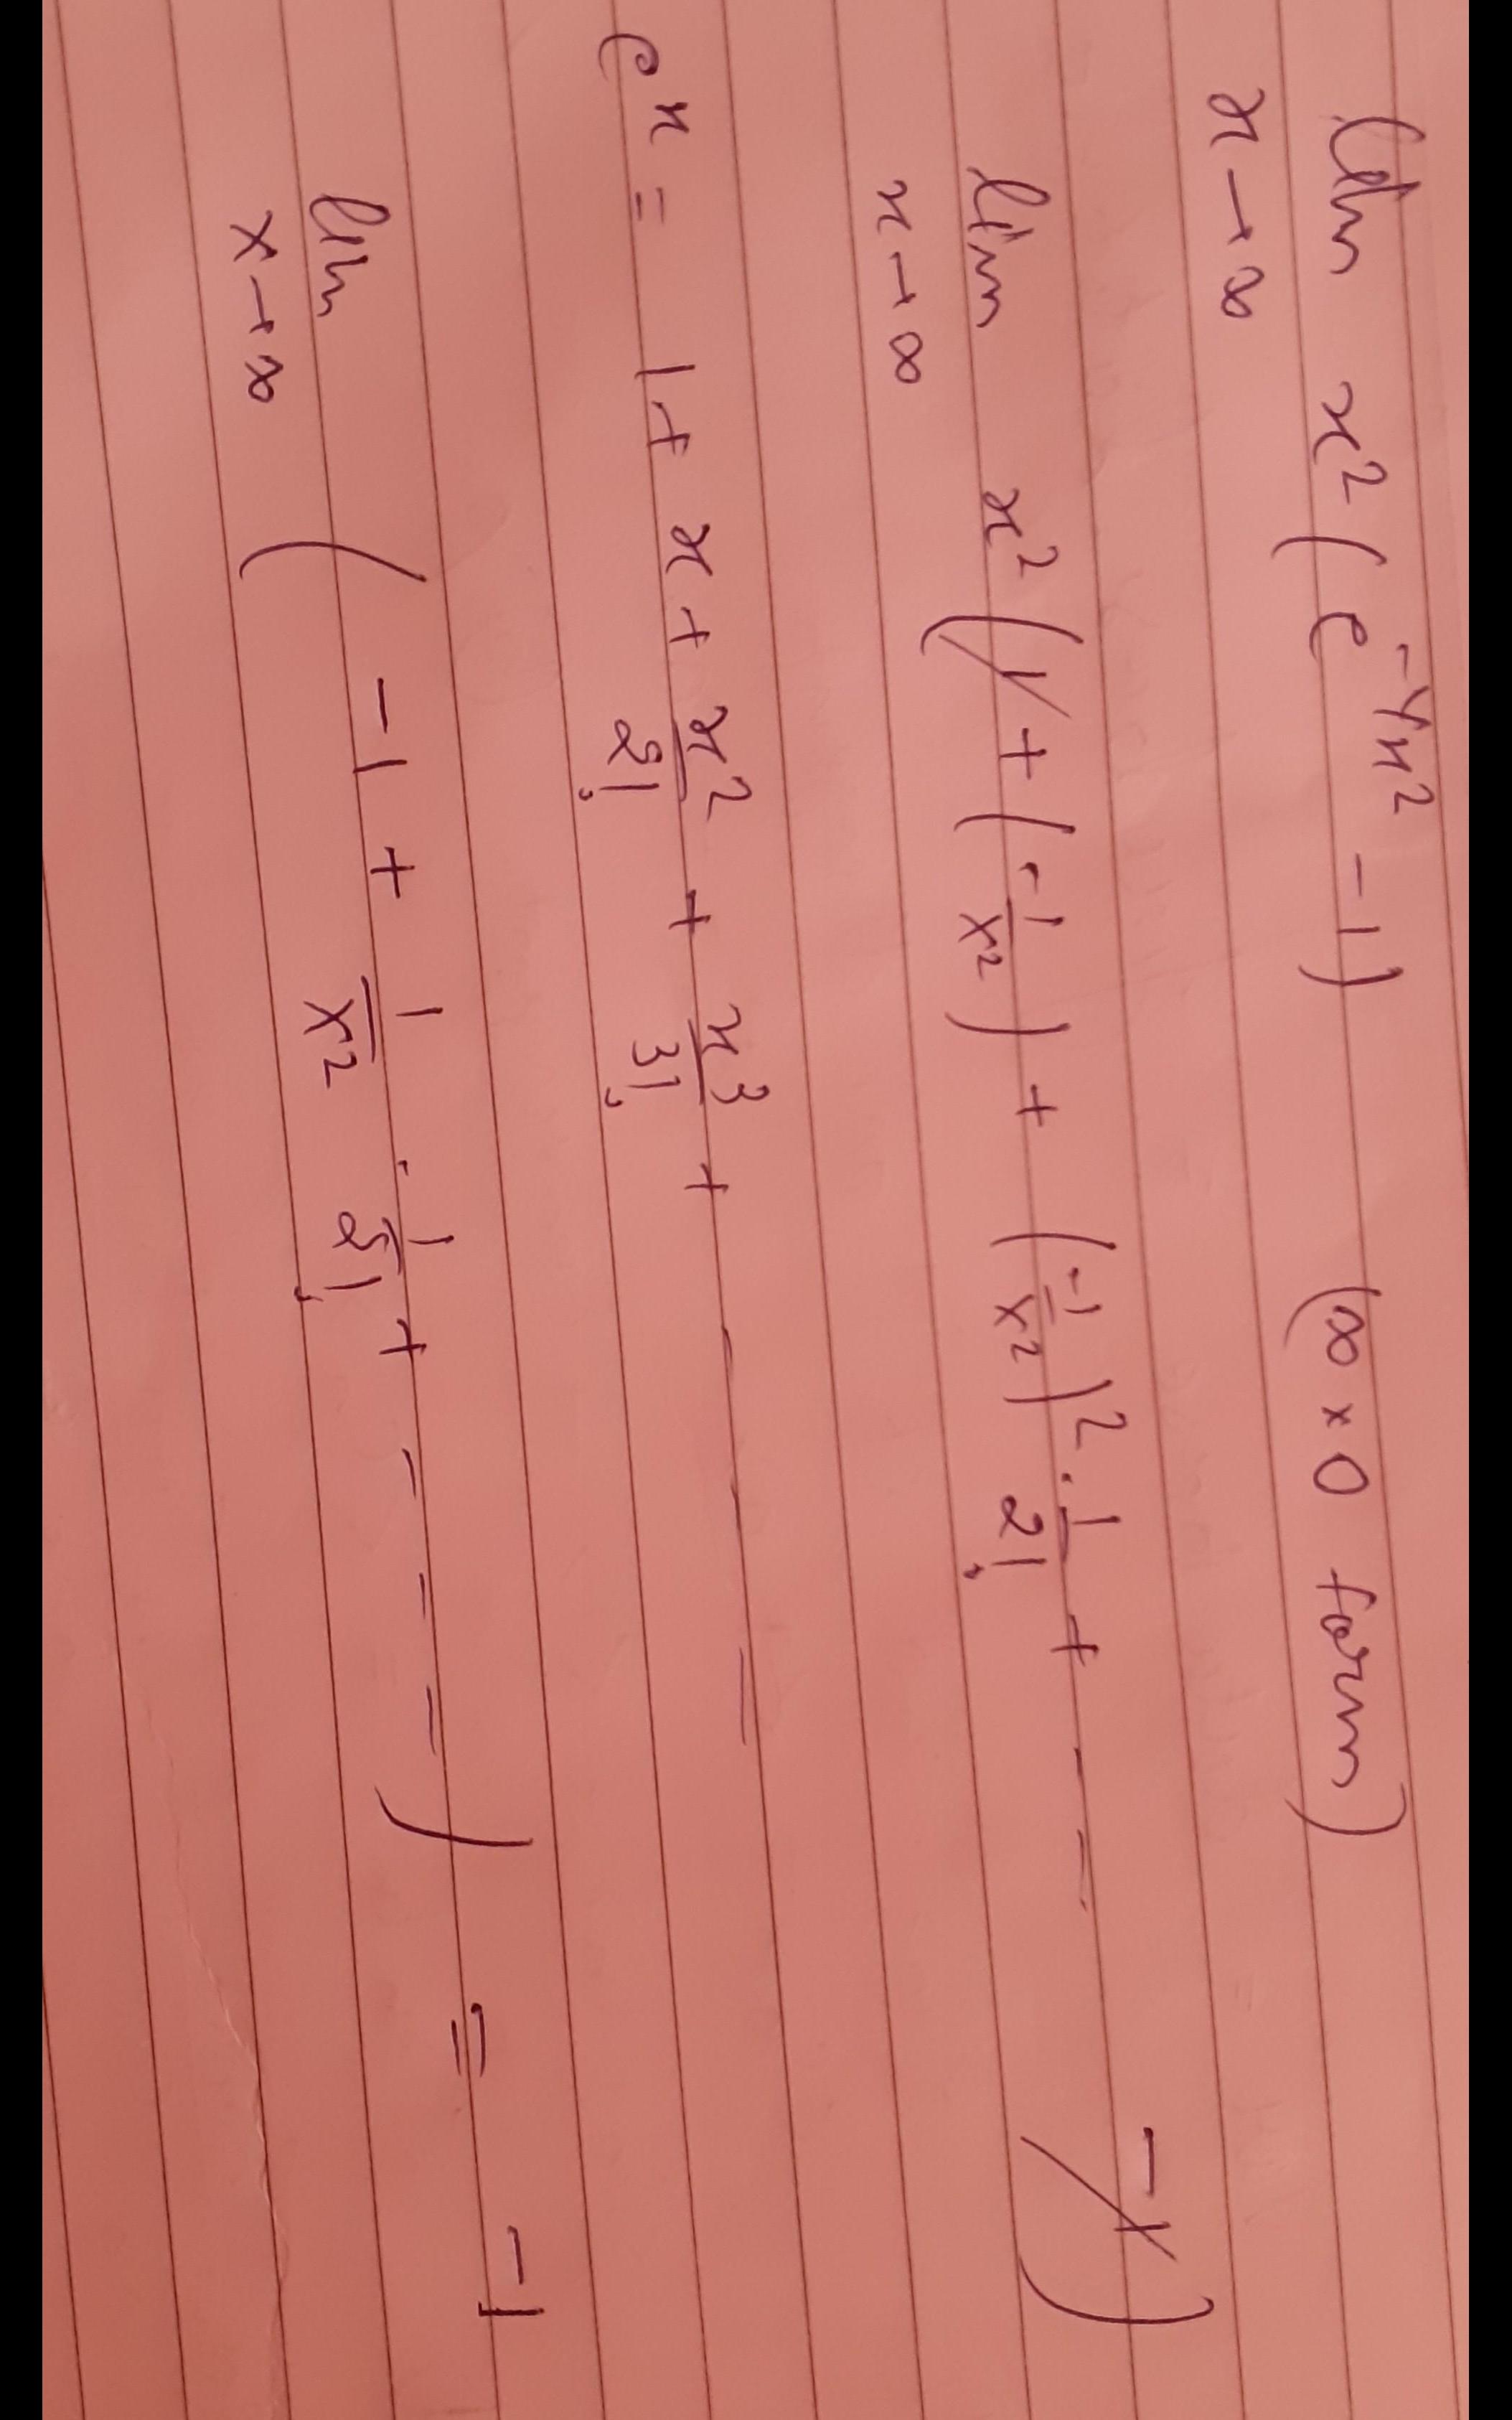 lim x² (e^(-1/x²) - 1) (∞ × 0 form)
x → ∞
lim x² (1 + (-1/x²) + (-1/x²)² · 1/2! + - - - 1)
x → ∞
e^x = 1 + x + x²/2! + x³/3! + - - -
lim ( -1 + 1/x² · 1/2! + - - - ) = -1
x → ∞